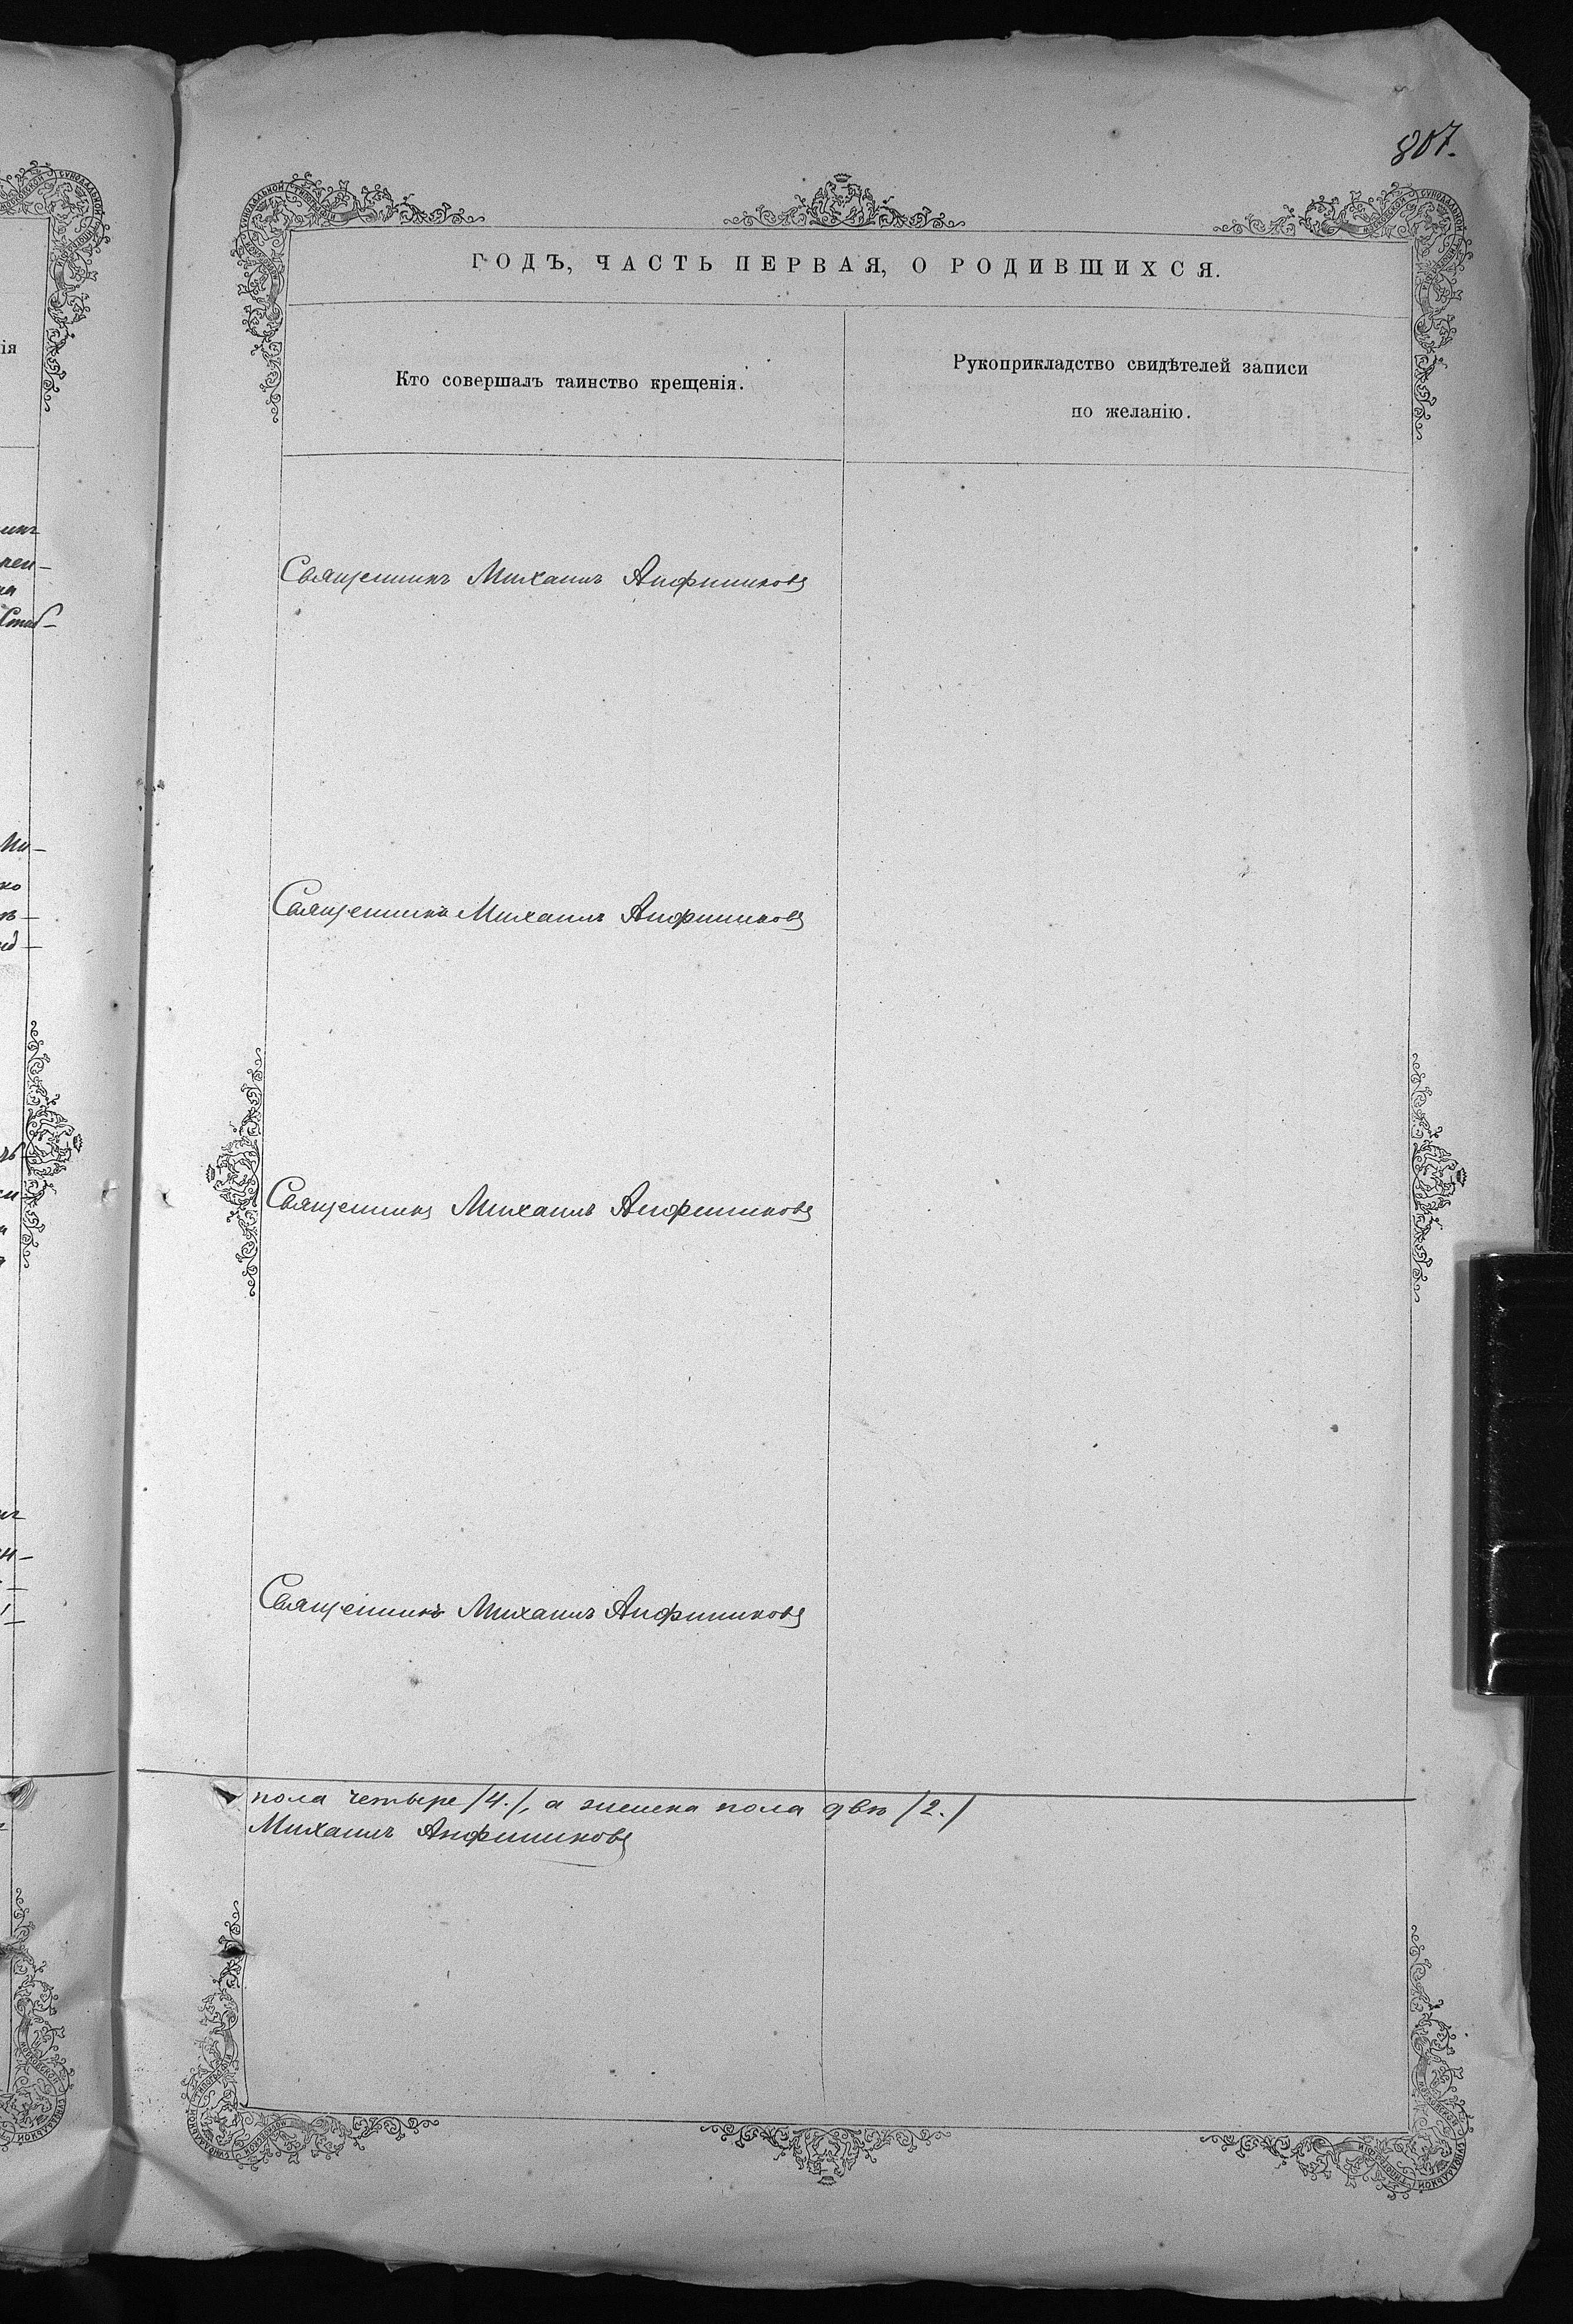 807.
ГОДЪ, ЧАСТЬ ПЕРВАЯ, О РОДИВШИХСЯ.
Кто совершалъ таинство крещенія.
Рукоприкладство свидѣтелей записи
по желанію.
Священникъ Михаилъ Анфиминовъ
Священникъ Михаилъ Анфиминовъ
Священникъ Михаилъ Анфиминовъ
Священникъ Михаилъ Анфиминовъ
пола четыре /4./, а женска пола двѣ /2./
Михаилъ Анфиминовъ